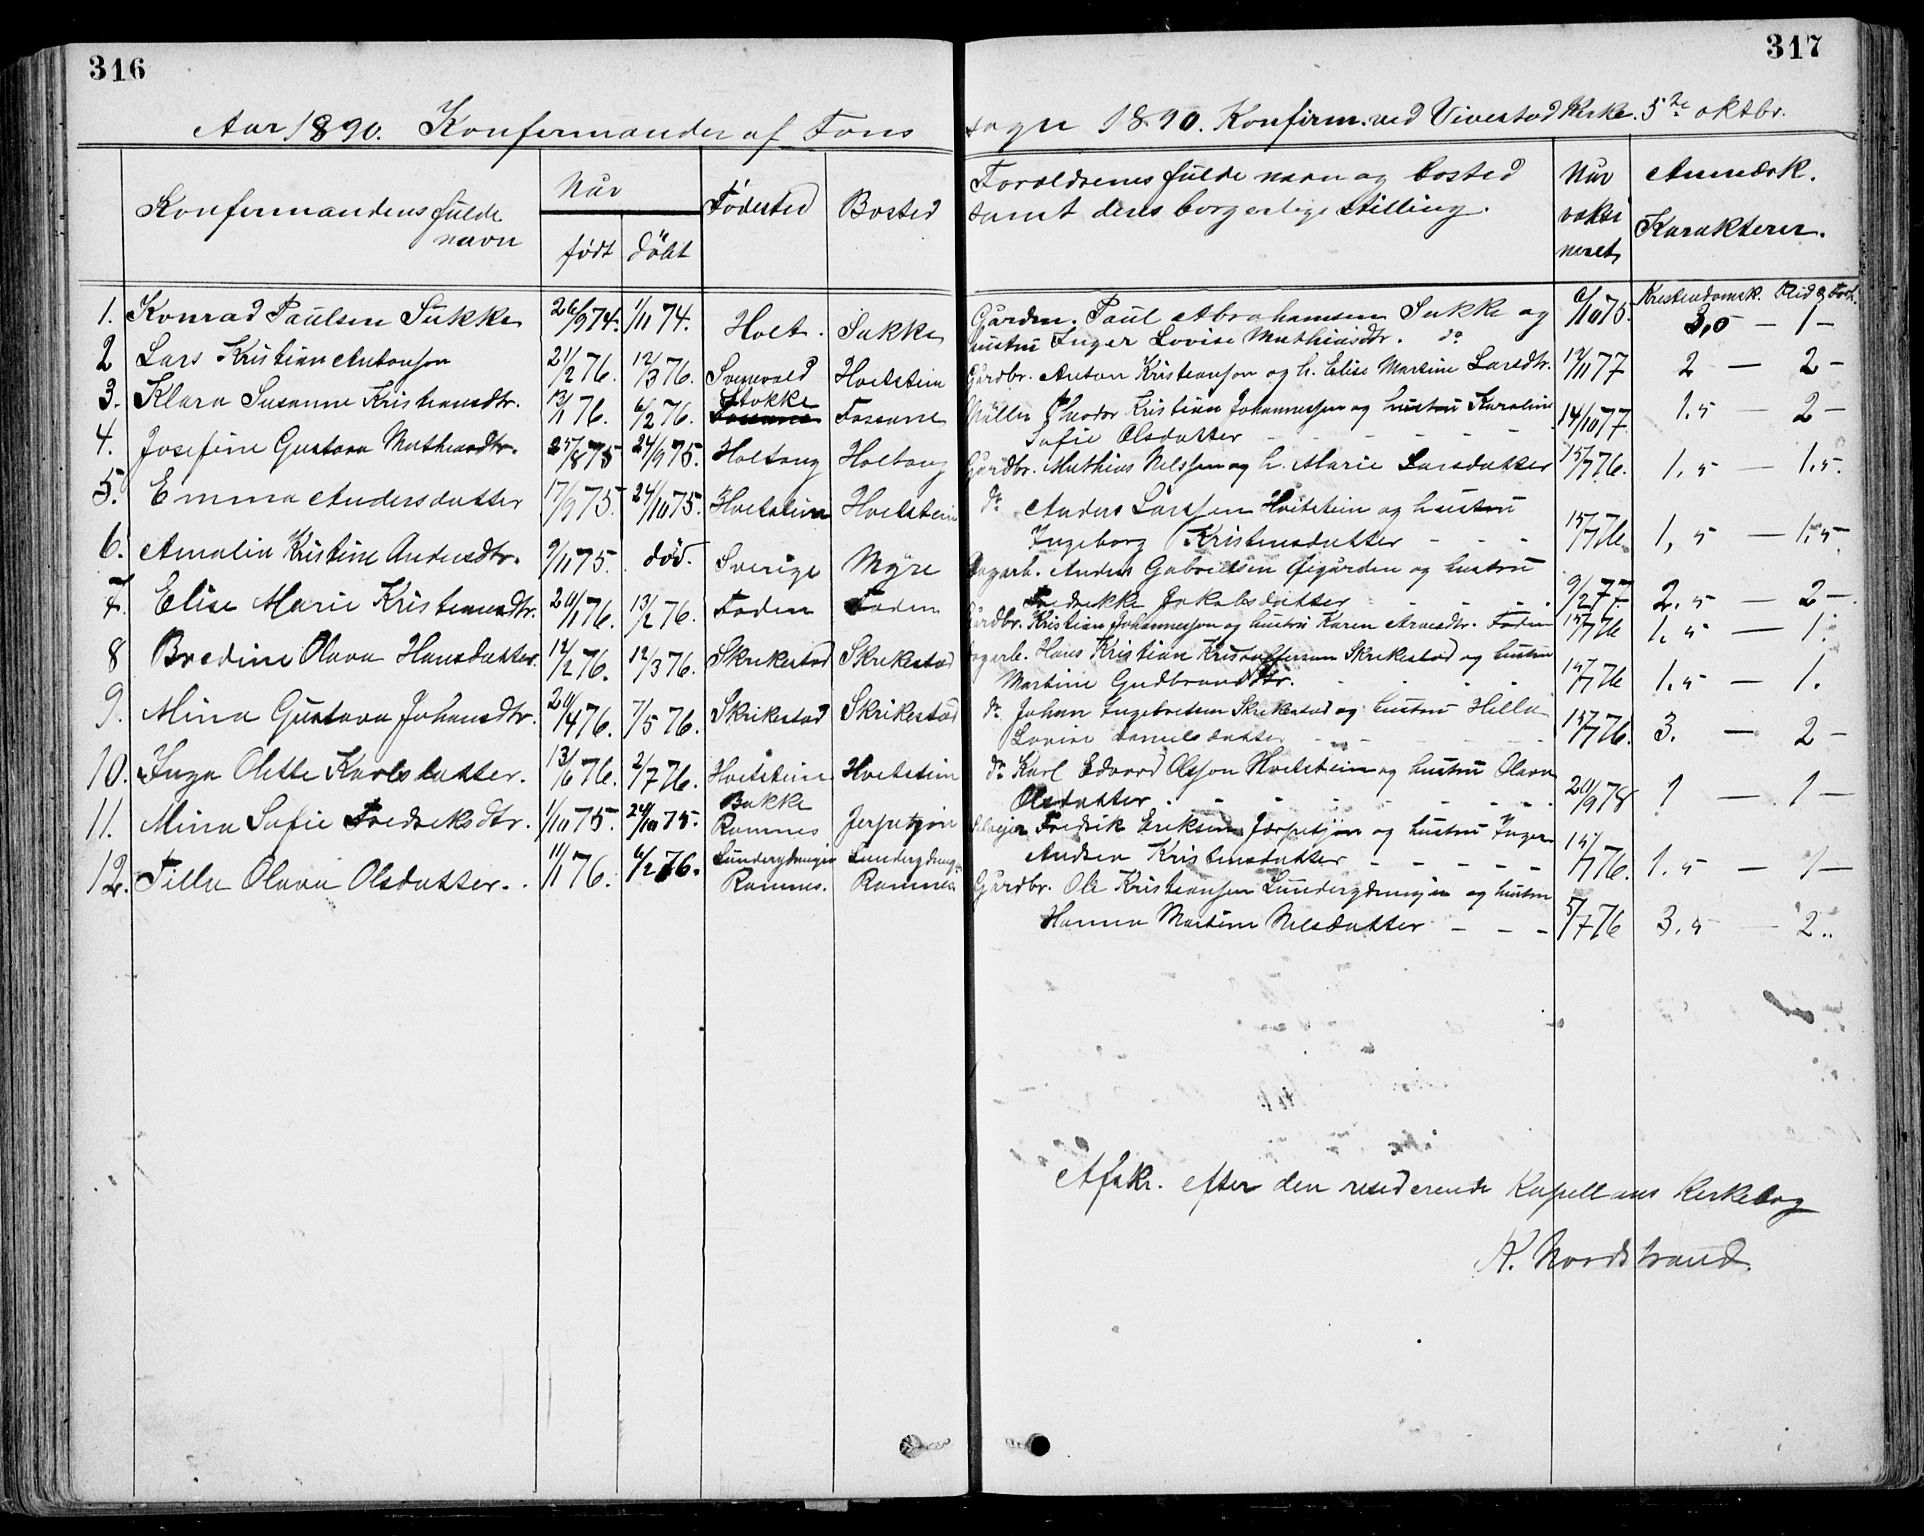 316
317
Aar 1890. Konfirmander af Fons
sogn 1890. Konfirm. ved Vivestad Kirke. 5te oktbr.
Konfirmandens fulde navn
Når
født
døbt
Fødested
Bosted
Foreldrenes fulde navn og bosted
samt deres borgerlige stilling.
Når vaksineret
Anmærk.
Karakterer.
Kristendomsk. Flid & Forh.
1. Konrad Paulsen Sukke 26/9 74. 1/11 74. Holt. Sukke Gårdm. Paul Abrahamsen Sukke og 6/10 75. 3,5 — 1 —
hustru Inger Lovise Mathiasdtr. do
2 Lars Kristian Antonson 21/2 76. 12/3 76. Svenevold Hvitstein Gårdbr. Anton Kristianson og h. Elise Martine Larsdtr. 12/11 77 2 — 2 —
3. Klara Susanne Kristiansdtr. 13/1 76. 6/2 76. Stokke Fossane Müller Theodor Kristian Johannessen og hustru Karoline 14/10 77. 1.5 — 2 —
Sofie Olsdatter
4. Josefine Gustava Mathiasdtr. 25/8 75 24/9 75. Holtang Holtang Gårdbr. Mathias Nilssen og h. Marie Larsdatter 15/7 76. 1,5 — 1.5.
5. Emma Andersdatter 17/9 75. 24/10 75. Hvitstein Hvitstein do Anders Larssen Hvitstein og hustru
Ingeborg Kristensdatter 15/7 76 1,5 — 1,5
6. Amalia Kristine Andersdtr. 9/11 75. død. Sverige Myre Dagarb. Anders Gabrielsen Øigården og hustru
Fredrikke Jakobsdatter 9/2 77 2.5 — 2 —
7. Elise Marie Kristiansdtr. 20/1 76. 13/2 76. Foden Foden Gårdbr. Kristian Johannesson og hustru Karen Arnesdtr. Foden 15/7 76 1.5 — 1.
8 Bredine Olava Hansdatter. 12/2 76. 12/3 76. Skrikestad Skrikestad Dagarb. Hans Kristian Kristoffersen Skrikestad og hustru
Martine Gudbrandsdtr. 15/7 76 1.5 — 1.
9. Mina Gustava Johansdtr. 20/4 76. 7/5 76. Skrikestad Skrikestad do Johan Ingebretsen Skrikestad og hustru Hella
Lovise Danielsdatter 15/7 76. 3. — 2 —
10. Inga Olette Karlsdatter. 13/6 76. 2/7 76. Hvitstein Hvitstein do Karl Edvard Olsson Hvitstein og hustru Olava
Olsdatter. 20/9 78 1 — 1 —
11. Mina Sofie Fredriksdtr. 1/10 75. 24/10 75. Bakke Ramnes Jerpetjøn Selveier Fredrik Eriksen Jærpetjøn og hustru Inger
Andrea Kristensdatter 15/7 76. 1.5 — 1 —
12. Tilla Olava Olsdatter. 11/1 76. 6/2 76. Ramnes. Ramnes Gårdbr. Ole Kristiansen og hustru
Hanna Martine Nilsdatter 5/7 76 3.5 — 2.
Afskr. efter den residerende Kapellans Kirkebog
K. Nordstrand.